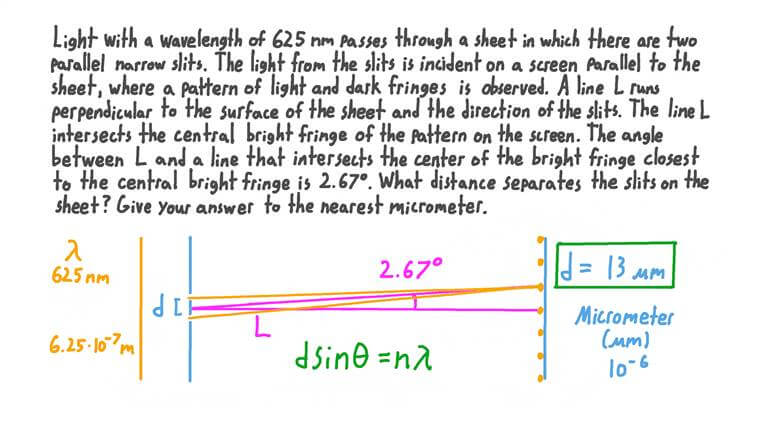 Light with a wavelength of 625 nm passes through a sheet in which there are two
parallel narrow slits. The light from the slits is incident on a screen parallel to the
sheet, where a pattern of light and dark fringes is observed. A line L runs
perpendicular to the surface of the sheet and the direction of the slits. The line L
intersects the central bright fringe of the pattern on the screen. The angle
between L and a line that intersects the center of the bright fringe closest
to the central bright fringe is 2.67°. What distance separates the slits on the
sheet? Give your answer to the nearest micrometer.
λ
625 nm
6.25·10⁻⁷ m
d
L
2.67°
d sinθ = nλ
d = 13 μm
Micrometer
(μm)
10⁻⁶